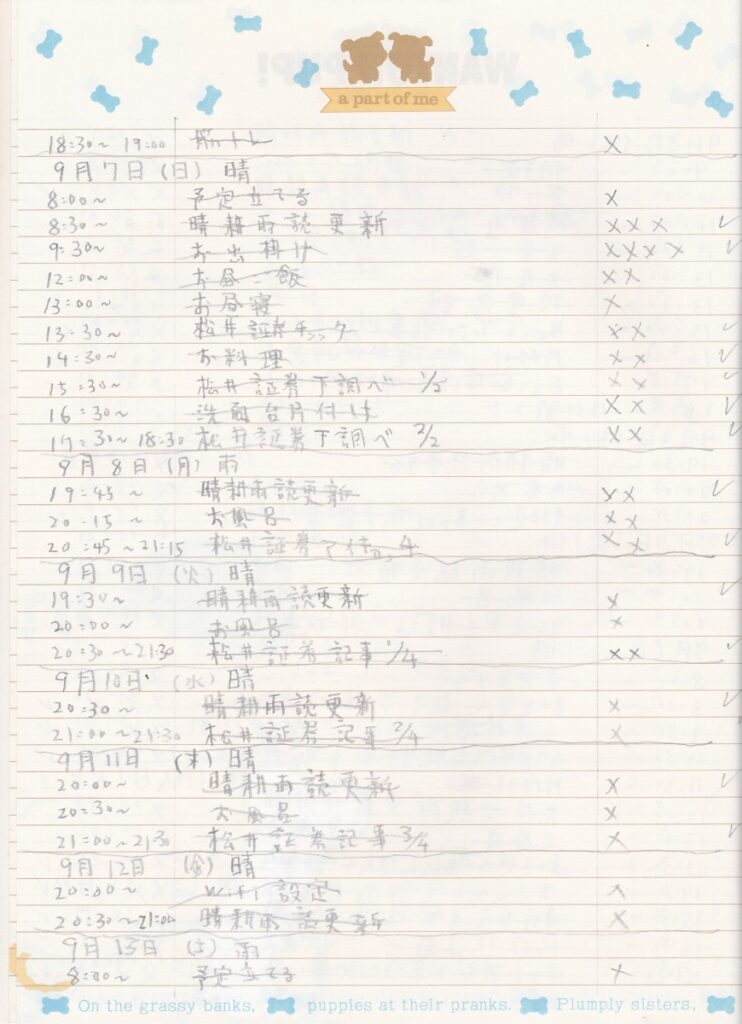 a part of me
18:30~ 19:00 筋トレ ×
9月7日(日) 晴
8:00~ 予定立てる ×
8:30~ 晴耕雨読更新 ××× ✓
9:30~ お出掛け ×××× ✓
12:00~ お昼ご飯 ××
13:00~ お昼寝 ×
13:30~ 松井証券チェック ×× ✓
14:30~ お料理 ×× ✓
15:30~ 松井証券下調べ 1/2 ×× ✓
16:30~ 洗面台片付け ×× ✓
17:30~18:30 松井証券下調べ 2/2 ×× ✓
9月8日(月) 雨
19:45~ 晴耕雨読更新 ×× ✓
20:15~ お風呂 ××
20:45~21:15 松井証券 ×× ✓
9月9日 (火) 晴
19:30~ 晴耕雨読更新 × ✓
20:00~ お風呂 ×
20:30~21:30 松井証券記事 1/4 ×× ✓
9月10日 (水) 晴
20:30~ 晴耕雨読更新 × ✓
21:00~21:30 松井証券記事 2/4 × ✓
9月11日 (木) 晴
20:00~ 晴耕雨読更新 × ✓
20:30~ お風呂 ×
21:00~21:30 松井証券記事 3/4 × ✓
9月12日 (金) 晴
20:00~ wifi 設定 ×
20:30~21:00 晴耕雨読更新 × ✓
9月13日 (土) 雨
8:00~ 予定立てる ×
On the grassy banks, puppies at their pranks. Plumply sisters,